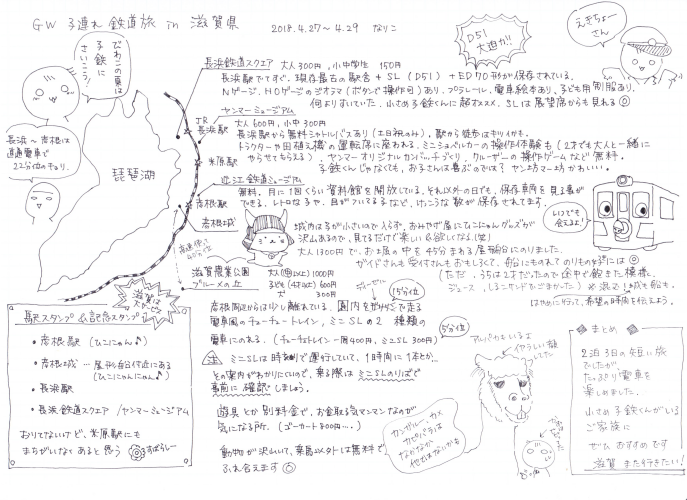 GW 子連れ 鉄道旅 in 滋賀県
2018.4.27〜4.29 なりこ
びわこの東は
子鉄に
さいこう!
D51
大迫力!!
えきちょー
さん
長浜鉄道スクエア 大人300円、小中学生 150円
長浜駅ですぐ。現存最古の駅舎 + SL(D51) + ED70形が保存されている。
Nゲージ、HOゲージのジオラマ(ボタンで操作可)あり。プラレール、電車絵本あり、子ども用制服あり。
何よりすいてた。小さめ子鉄くんに超オススメ。SLは展望席からも見れる
ヤンマーミュージアム
大人600円、小中300円
JR
長浜駅
長浜駅から無料シャトルバスあり(土日祝のみ)。駅から徒歩はキツイかも。
トラクターや田植え機の運転席に座れる。ミニショベルカーの操作体験も(2才でも大人と一緒に
やらせてもらえる)。ヤンマーオリジナルカンバッチづくり、クルーザーの操作ゲームなど無料。
子鉄くんじゃなくても、お子さんは喜ぶのでは? ヤン坊マー坊かわいい。
長浜〜彦根は
普通電車で
22分位のキョリ。
琵琶湖
米原駅
近江鉄道ミュージアム
無料。月に1回くらい資料館を開放している。それ以外の日でも、保存車両を見る事が
できる。レトロなるや、目がついてるるなど、けっこうな数が保存されてます。
彦根駅
彦根城
城内は子が小さいので入らず。おみやげ屋にひこにゃんグッズが
沢山あるので、見てるだけで楽しい&欲しくなる。(笑)
大人1300円で、お土産の中を45分まわる屋形船にのりました。
ガイドさんも受付さんもおもしろくて、船にものれてのりもの好きには
(ただ、35は2才だったので途中で飽きた模様。
はやめに行って、希望の時間を伝えよう。
いつでも
会えるよ!
高速使って
40分位
滋賀農業公園
ブルーメの丘
大人 1000円
子ども(4才以上) 600円
300円
15分位
彦根周辺からは少し離れている。園内をディーゼルで走る
電車風のチューチュートレイン、ミニSLの2種類の
電車にのれる。(チューチュートレイン一周400円、ミニSL 300円)
5分位
ミニSLは時刻りで運行していて、1時間に1本とか…
その案内がわかりにくいので、乗る際はミニSLのりばで
事前に確認しましょう。
遊具とか別料金で、お金取る気マンマンなのが
気になる所。(ゴーカート800円…。)
動物が沢山いて、乗馬以外は無料で
ふれ合えます
アルパカもいるよ
いやらしい顔
してた
カンガルー、カメ
カピバラは
なかなか
他ではないかも
滋賀は
スゴービワ
駅スタンプ&記念スタンプ
・彦根駅 (ひこにゃん♪)
・彦根城 … 屋形船付近にある
(ひこにゃんにゃん♪)
・長浜駅
・長浜鉄道スクエア/ヤンマーミュージアム
おりてないけど、米原駅にも
まちがいなくあると思う すばらしー
まとめ
2泊3日の短い旅
でしたが
たっぷり電車を
楽しめました。
小さめ子鉄くんがいる
ご家族に
ぜひおすすめです
滋賀 また行きたい!